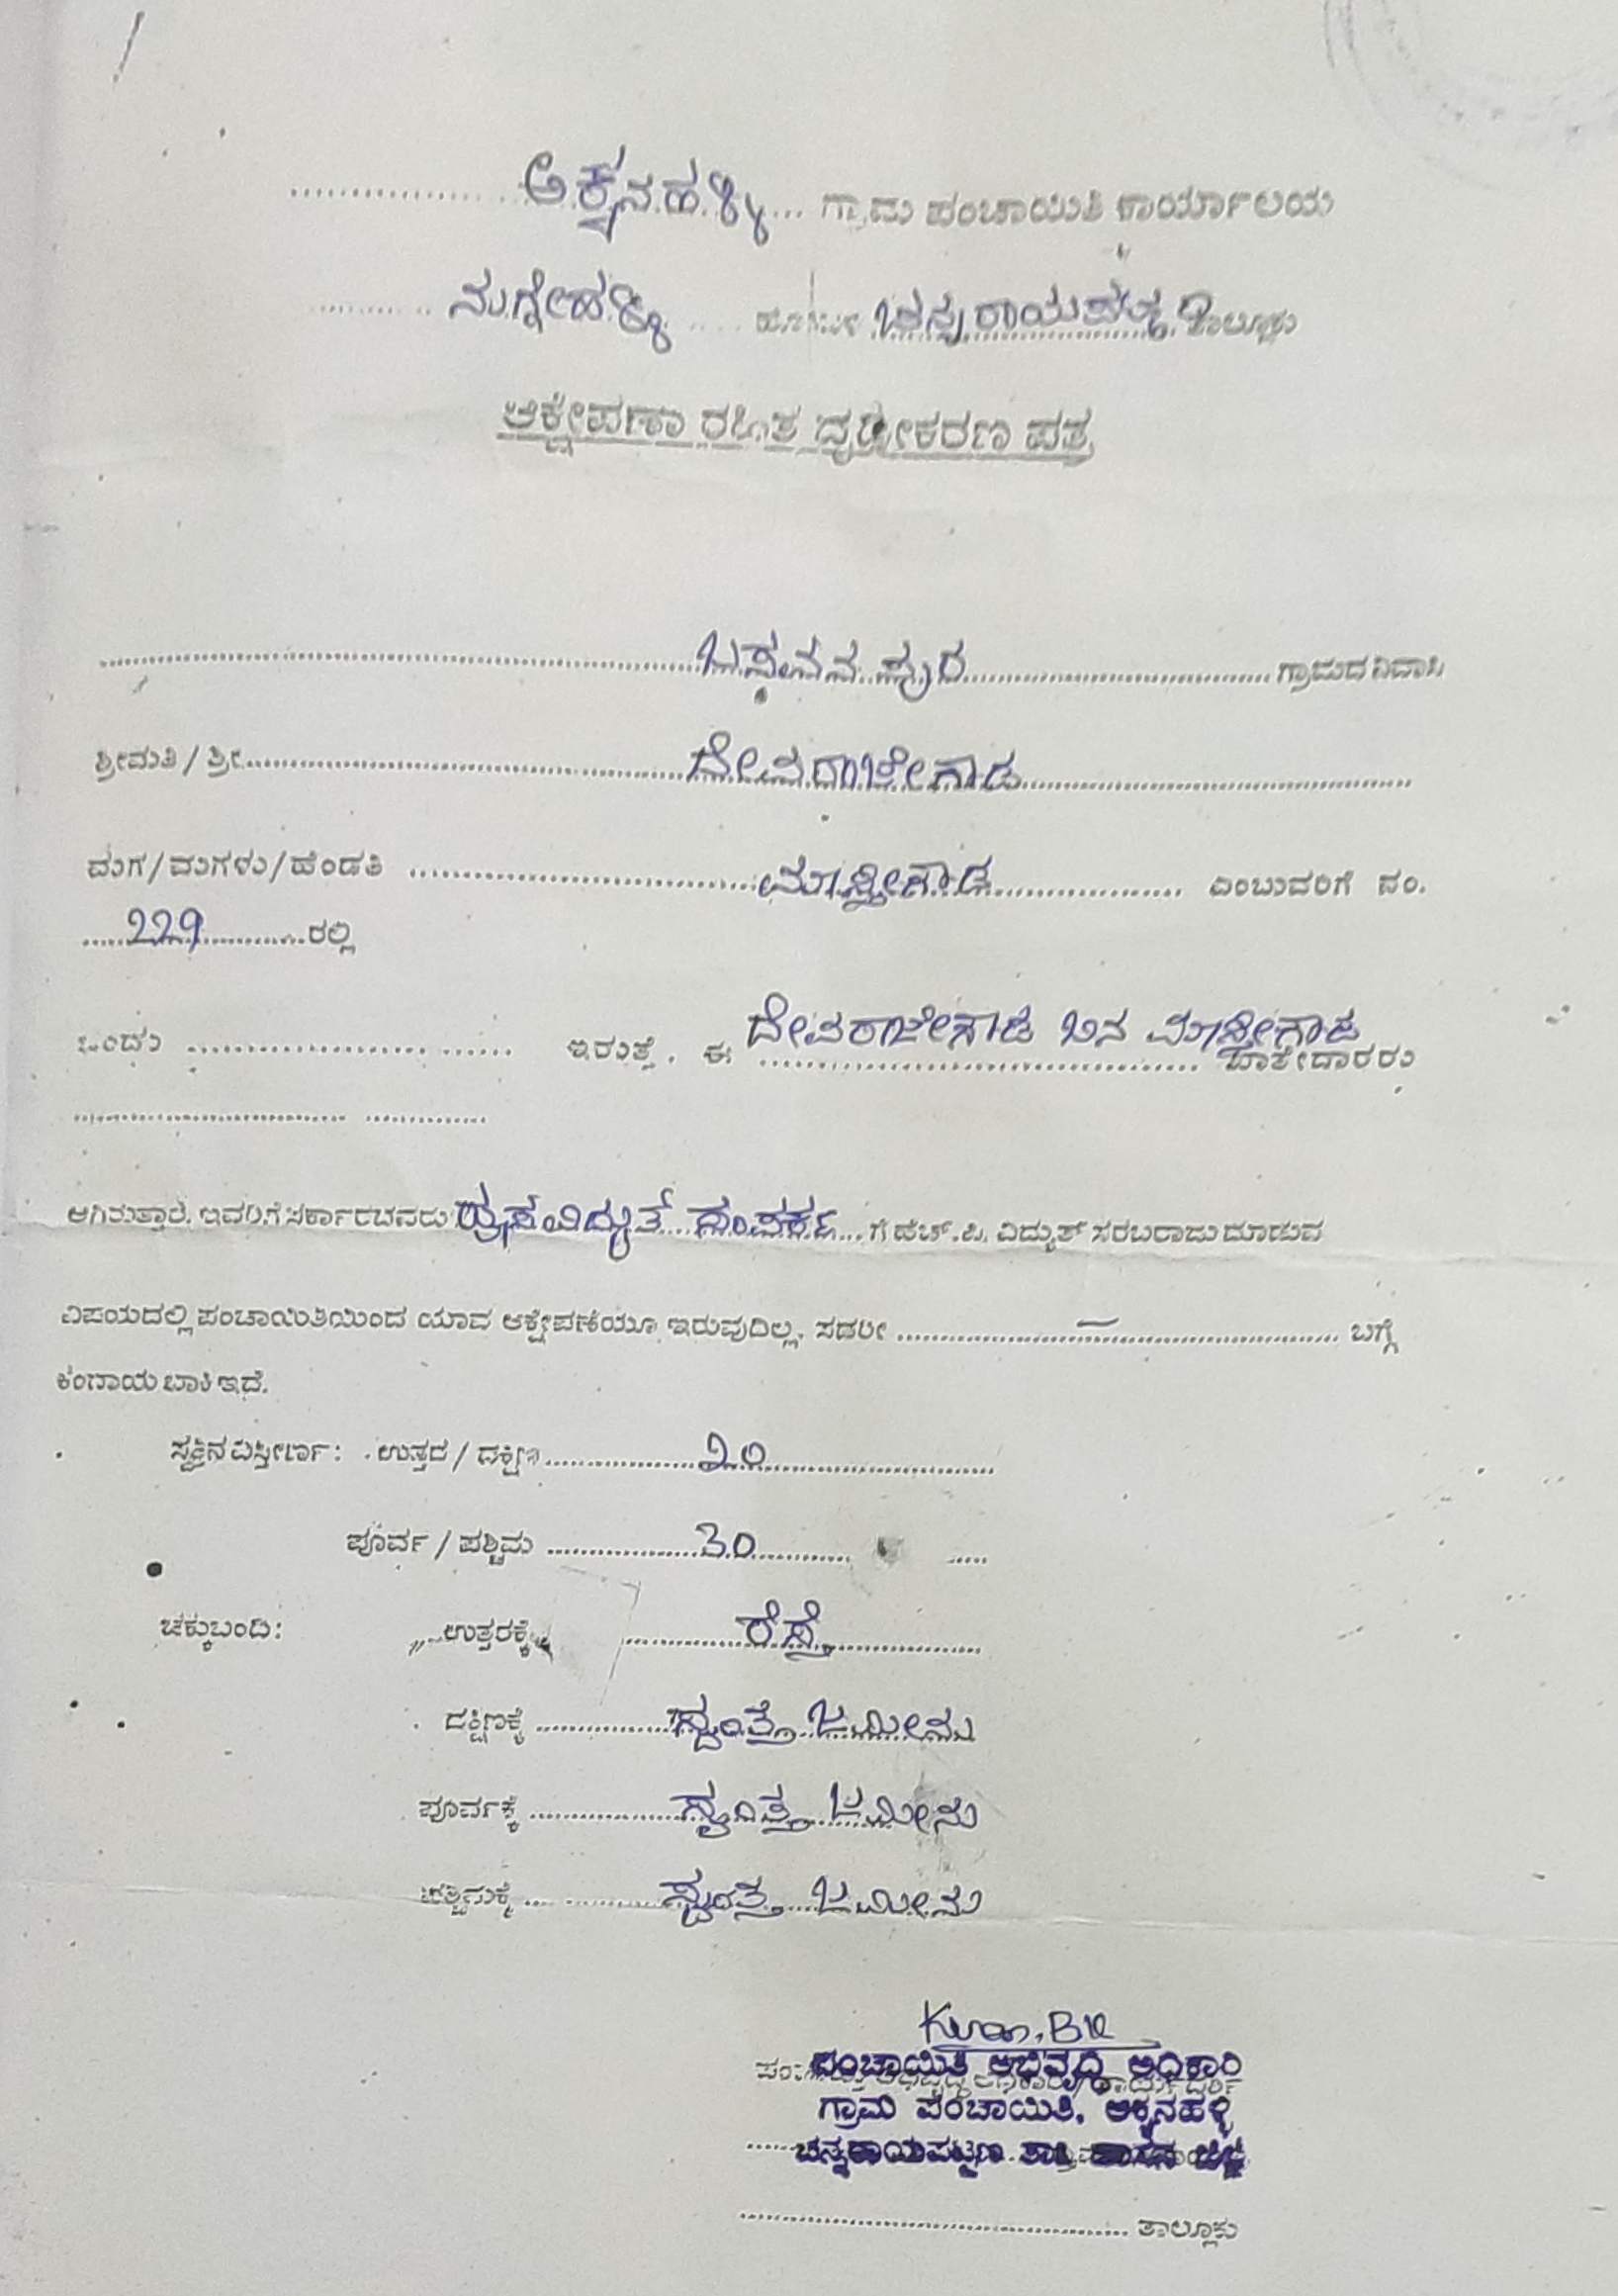 ಅಕ್ಕನಹಳ್ಳಿ ಗ್ರಾಮ ಪಂಚಾಯಿತಿ ಕಾರ್ಯಾಲಯ
ನುಗ್ಗೇಹಳ್ಳಿ ಹೋಬಳಿ ಚನ್ನರಾಯಪಟ್ಟಣ ತಾಲ್ಲೂಕು
ಆಕ್ಷೇಪಣಾ ರಹಿತ ದೃಢೀಕರಣ ಪತ್ರ
ಬಸವನಪುರ ಗ್ರಾಮದ ನಿವಾಸಿ
ಶ್ರೀಮತಿ / ಶ್ರೀ ದೇವರಾಜೇಗೌಡ
ಮಗ/ಮಗಳು/ಹೆಂಡತಿ ಎಂಬುವರಿಗೆ ನಂ.
229 ರಲ್ಲಿ
ಒಂದು ಇರುತ್ತೆ. ಈ ದೇವರಾಜೇಗೌಡ ಬಿನ್ ಖಾತೇದಾರರು
ಆಗಿರುತ್ತಾರೆ. ಇವರಿಗೆ ಸರ್ಕಾರದವರು ಸಂಪರ್ಕ ಗೆ ಹೆಚ್.ಪಿ. ವಿದ್ಯುತ್ ಸರಬರಾಜು ಮಾಡುವ
ವಿಷಯದಲ್ಲಿ ಪಂಚಾಯಿತಿಯಿಂದ ಯಾವ ಆಕ್ಷೇಪಣೆಯೂ ಇರುವುದಿಲ್ಲ. ಸದರೀ ಬಗ್ಗೆ
ಕಂದಾಯ ಬಾಕಿ ಇದೆ.
ಸ್ವತ್ತಿನ ವಿಸ್ತೀರ್ಣ: ಉತ್ತರ / ದಕ್ಷಿಣ ೨೦
ಪೂರ್ವ / ಪಶ್ಚಿಮ 30
ಚಕ್ಕುಬಂದಿ: ಉತ್ತರಕ್ಕೆ ರೆಸ್ತೆ
ದಕ್ಷಿಣಕ್ಕೆ ಸ್ವಂತ್ತ ಜಮೀನು
ಪೂರ್ವಕ್ಕೆ ಸ್ವಂತ್ತ ಜಮೀನು
ಪಶ್ಚಿಮಕ್ಕೆ ಸ್ವಂತ್ತ ಜಮೀನು
ಪಂಚಾಯಿತಿ ಅಭಿವೃದ್ಧಿ ಅಧಿಕಾರಿ
ಗ್ರಾಮ ಪಂಚಾಯಿತಿ, ಅಕ್ಕನಹಳ್ಳಿ
ಚನ್ನರಾಯಪಟ್ಟಣ ತಾ॥ ಹಾಸನ ಜಿಲ್ಲೆ
ತಾಲ್ಲೂಕು